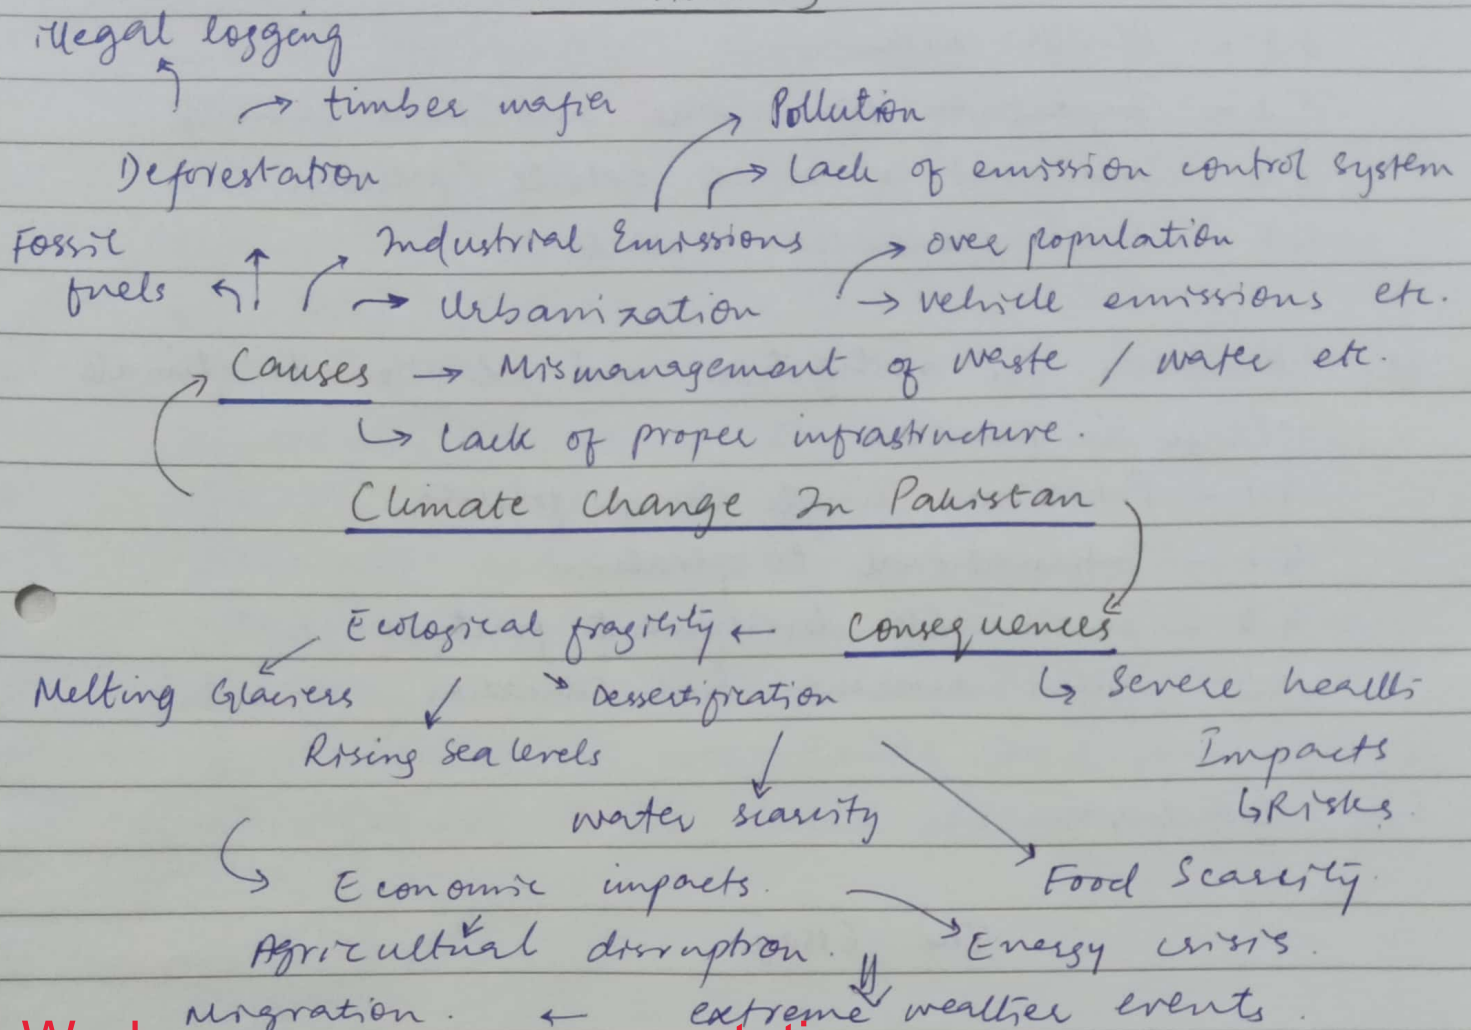 illegal logging
timber mafia
Pollution
Deforestation
Lack of emission control system
Fossil
fuels
Industrial Emissions
over population
Urbanization
vehicle emissions etc.
Causes → Mismanagement of waste / water etc.
Lack of proper infrastructure.
Climate Change In Pakistan
Ecological fragility ← Consequences
Melting Glaciers
Dessertification
Severe health
Rising sea levels
Impacts
Risks
water scarcity
Economic impacts.
Food Scarcity.
Agricultural disruption.
Energy crisis.
Migration. ← extreme weather events.